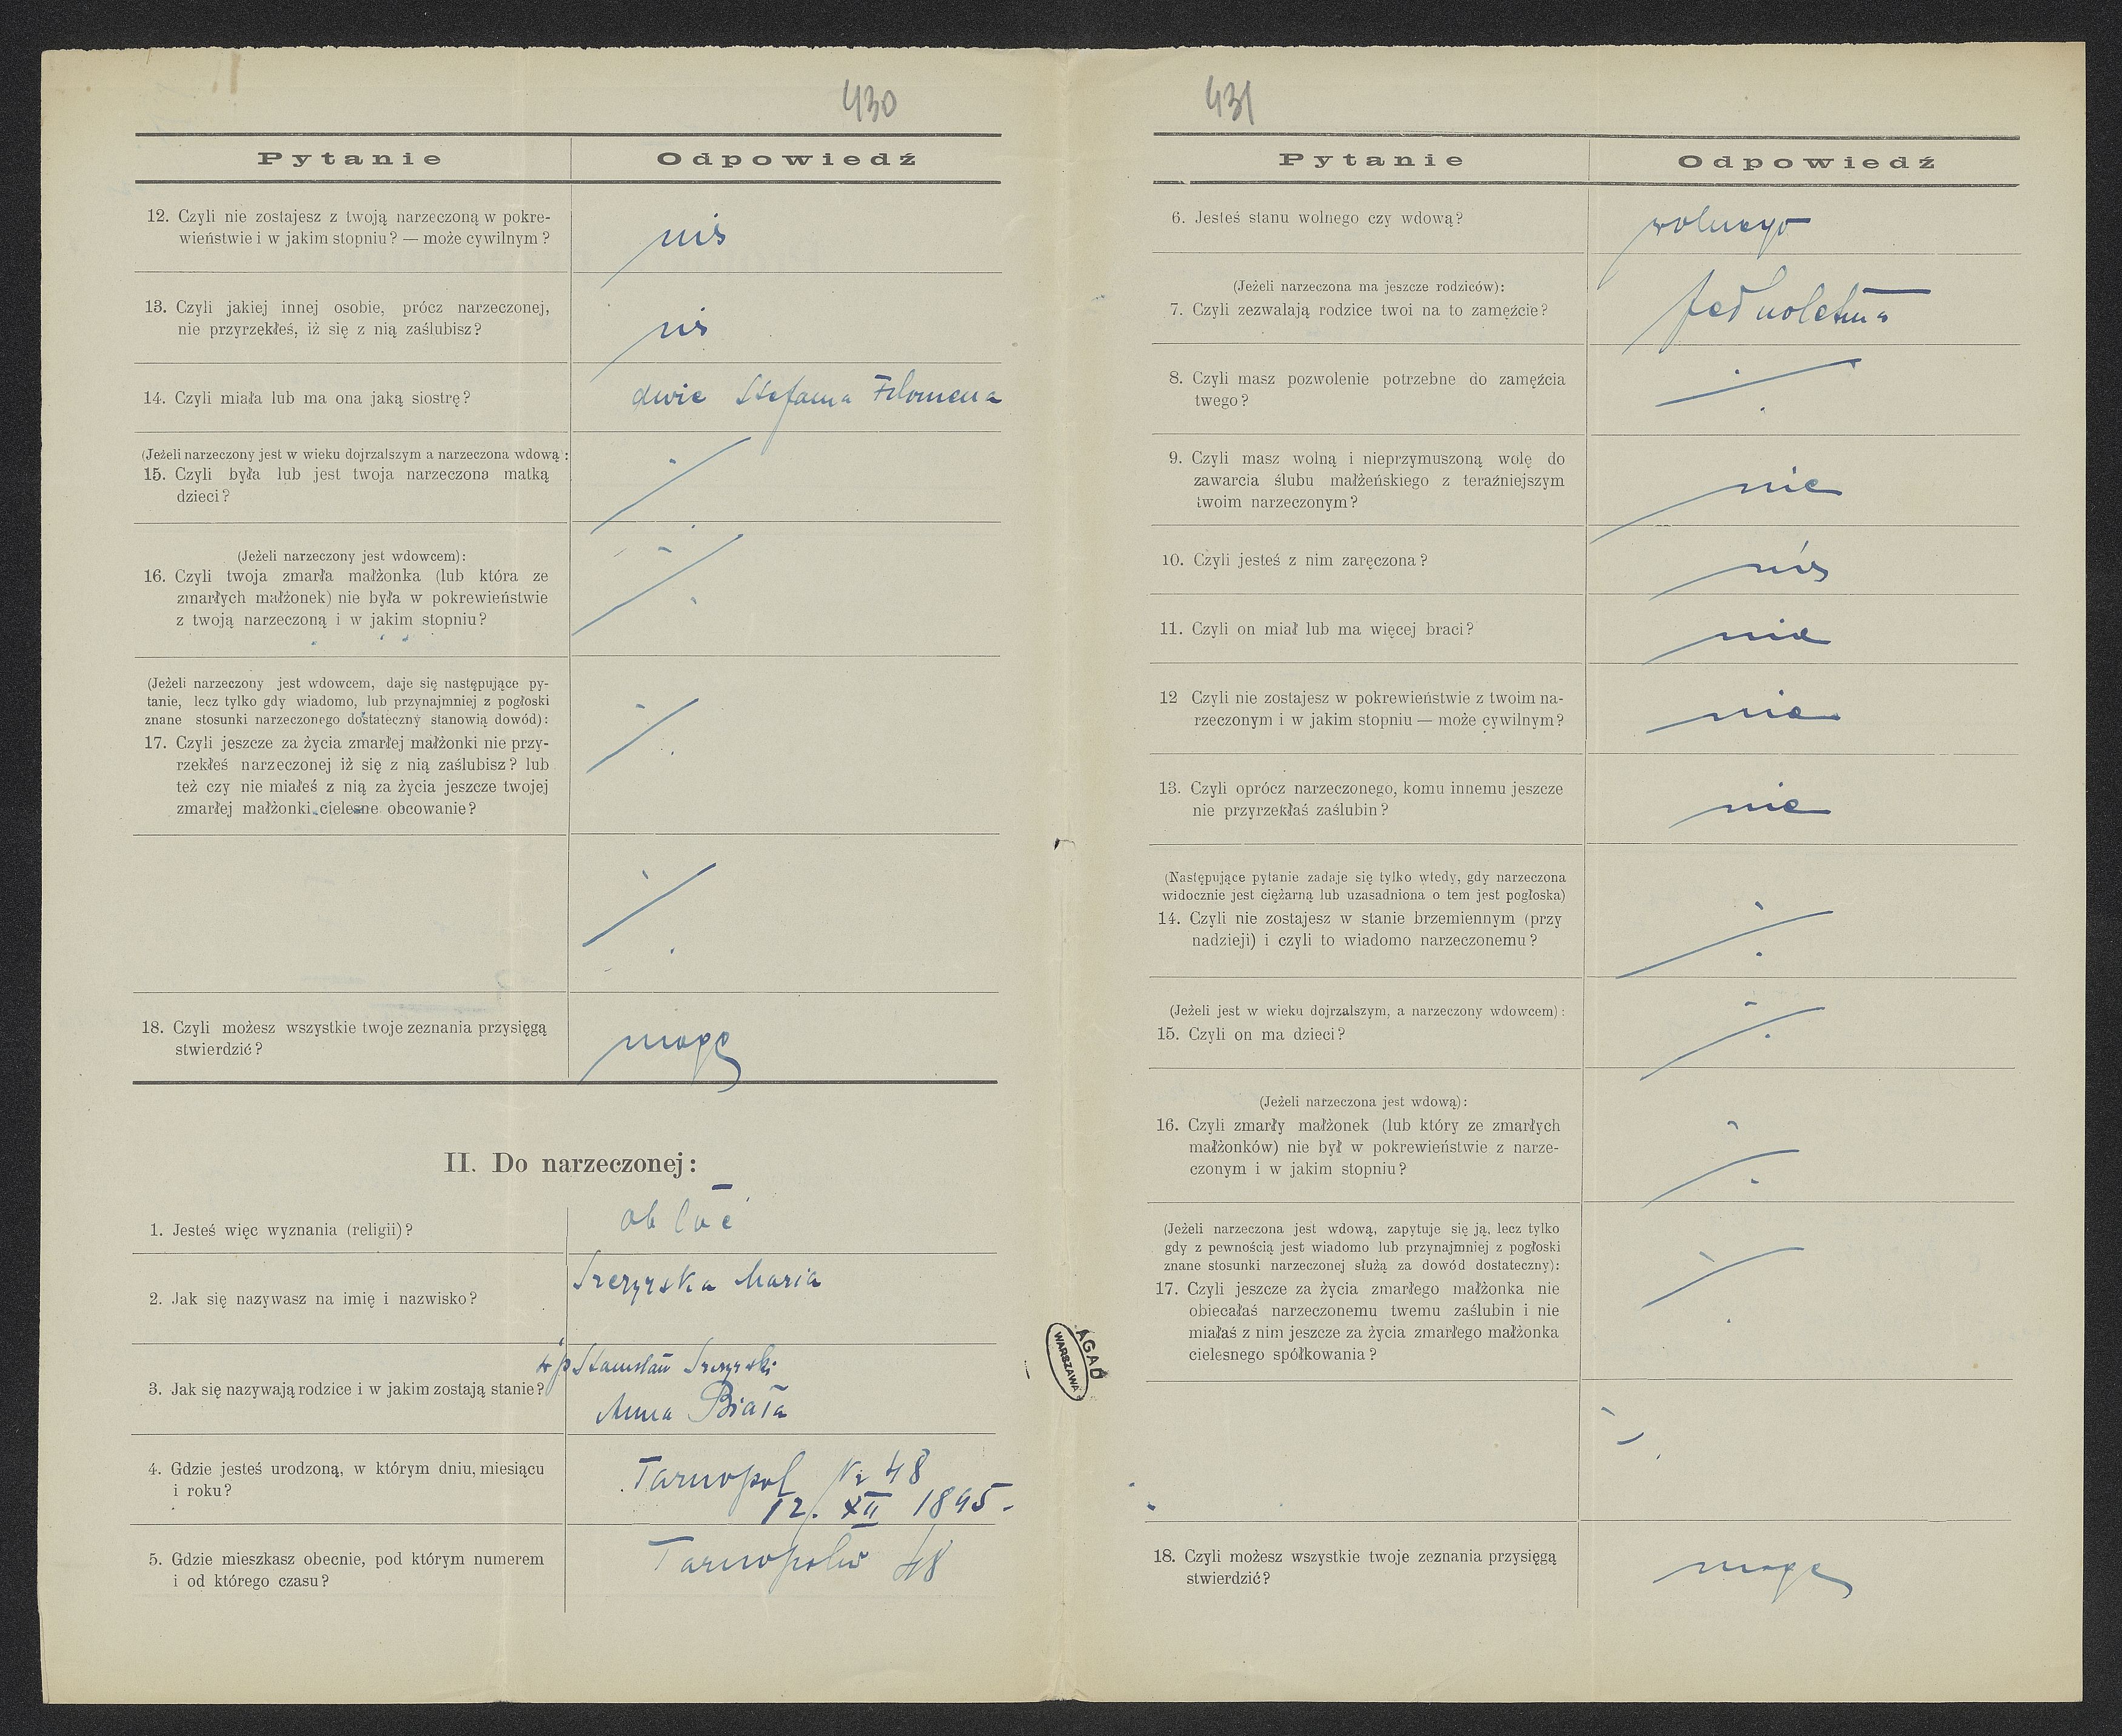 430
Pytanie Odpowiedź
12. Czyli nie zostajesz z twoją narzeczoną w pokre-
wieństwie i w jakim stopniu? — może cywilnym?
nie
13. Czyli jakiej innej osobie, prócz narzeczonej,
nie przyrzekłeś, iż się z nią zaślubisz?
nie
14. Czyli miała lub ma ona jaką siostrę?
dwie Stefania Filomena
(Jeżeli narzeczony jest w wieku dojrzalszym a narzeczona wdową:
15. Czyli była lub jest twoja narzeczona matką
dzieci?
(Jeżeli narzeczony jest wdowcem):
16. Czyli twoja zmarła małżonka (lub która ze
zmarłych małżonek) nie była w pokrewieństwie
z twoją narzeczoną i w jakim stopniu?
(Jeżeli narzeczony jest wdowcem, daje się następujące py-
tanie, lecz tylko gdy wiadomo, lub przynajmniej z pogłoski
znane stosunki narzeczonego dostateczny stanowią dowód):
17. Czyli jeszcze za życia zmarłej małżonki nie przy-
rzekłeś narzeczonej iż się z nią zaślubisz? lub
też czy nie miałeś z nią za życia jeszcze twojej
zmarłej małżonki cielesne obcowanie?
18. Czyli możesz wszystkie twoje zeznania przysięgą
stwierdzić?
mogę
II. Do narzeczonej:
1. Jesteś więc wyznania (religii)?
2. Jak się nazywasz na imię i nazwisko?
Maria
3. Jak się nazywają rodzice i w jakim zostają stanie?
Stanisław
Anna Biała
4. Gdzie jesteś urodzoną, w którym dniu, miesiącu
i roku?
Tarnopol Nr 48
12. XII 1895.
5. Gdzie mieszkasz obecnie, pod którym numerem
i od którego czasu?
48
431
Pytanie Odpowiedź
6. Jesteś stanu wolnego czy wdową?
wolnego
(Jeżeli narzeczona ma jeszcze rodziców):
7. Czyli zezwalają rodzice twoi na to zamęźcie?
8. Czyli masz pozwolenie potrzebne do zamęźcia
twego?
9. Czyli masz wolną i nieprzymuszoną wolę do
zawarcia ślubu małżeńskiego z teraźniejszym
twoim narzeczonym?
nie
10. Czyli jesteś z nim zaręczona?
nie
11. Czyli on miał lub ma więcej braci?
nie
12 Czyli nie zostajesz w pokrewieństwie z twoim na-
rzeczonym i w jakim stopniu — może cywilnym?
nie
13. Czyli oprócz narzeczonego, komu innemu jeszcze
nie przyrzekłaś zaślubin?
nie
(Następujące pytanie zadaje się tylko wtedy, gdy narzeczona
widocznie jest ciężarną lub uzasadniona o tem jest pogłoska)
14. Czyli nie zostajesz w stanie brzemiennym (przy
nadzieji) i czyli to wiadomo narzeczonemu?
(Jeżeli jest w wieku dojrzalszym, a narzeczony wdowcem):
15. Czyli on ma dzieci?
(Jeżeli narzeczona jest wdową):
16. Czyli zmarły małżonek (lub który ze zmarłych
małżonków) nie był w pokrewieństwie z narze-
czonym i w jakim stopniu?
(Jeżeli narzeczona jest wdową, zapytuje się ją, lecz tylko
gdy z pewnością jest wiadomo lub przynajmniej z pogłoski
znane stosunki narzeczonej służą za dowód dostateczny):
17. Czyli jeszcze za życia zmarłego małżonka nie
obiecałaś narzeczonemu twemu zaślubin i nie
miałaś z nim jeszcze za życia zmarłego małżonka
cielesnego spółkowania?
18. Czyli możesz wszystkie twoje zeznania przysięgą
stwierdzić?
mogę
AGAD
WARSZAWA